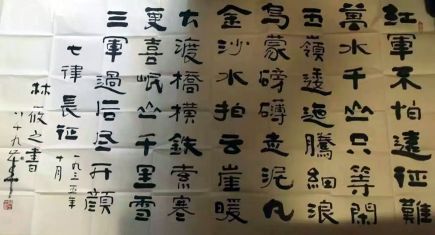 紅軍不怕遠征難
萬水千山只等閑
五嶺逶迤騰細浪
烏蒙磅礴走泥丸
金沙水拍云崖暖
大渡橋橫鐵索寒
更喜岷山千里雪
三軍過后尽开顔
七律 長征
一九三五年
十月
林筱之書
八十九